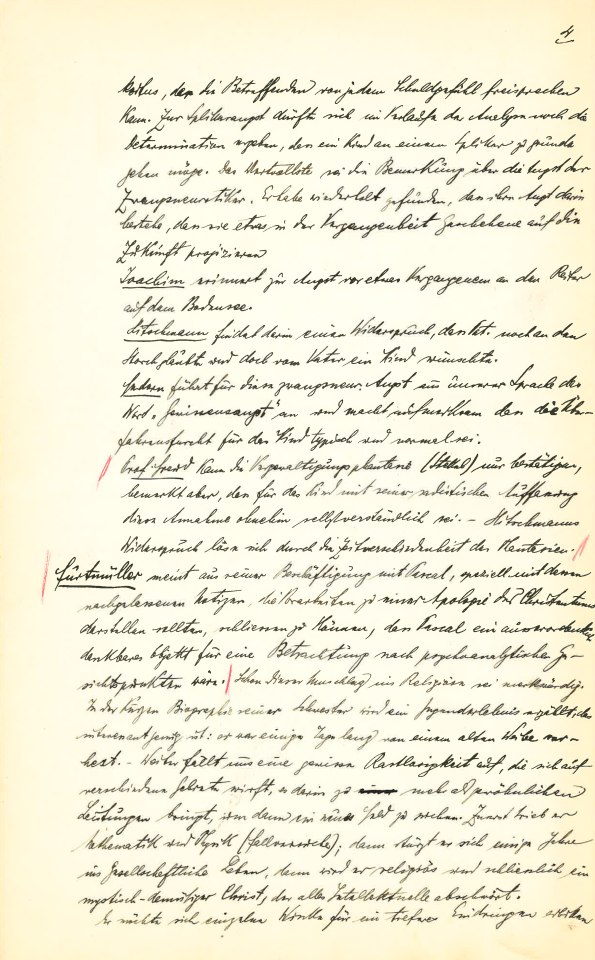 4
Koitus, der die Betreffenden von jedem Schuldgefühl freisprechen
kann. Zur Splitterangst dürfte sich im Verlaufe der Analyse noch die
Determination ergeben, dass ein Kind an einem Splitter zu grunde
gehen möge. Das Wertvollste sei die Bemerkung über die Angst der
Zwangsneurotiker. Er habe wiederholt gefunden, dass ihre Angst darin
bestehe, dass sie etwas in der Vergangenheit Geschehene auf die
Zukunft projizieren
Joachim erinnert zur Angst vor etwas Vergangenem an den Reiter
auf dem Bodensee.
Hitschmann findet darin einen Widerspruch, dass Pat. noch an den
Storch glaubte und doch vom Vater ein Kind wünschte.
Federn führt für diese zwangsneur. Angst in unserer Sprache das
Wort "Gewissensangst" an und macht aufmerksam dass die
für das Kind typisch und normal sei.
Prof. Freud kann die Vergewaltigungsphantasie (Stekel) nur bestätigen,
bemerkt aber, dass für das Kind mit seiner sadistischen Auffassung
diese Annahme ohnehin selbstverständlich sei. – Hitschmanns
Widerspruch löse sich durch die Zeitverschiedenheit der Phantasien.
Furtmüller meint aus seiner Beschäftigung mit Pascal, speziell mit dessen
nachgelassenen Notizen, die Vorarbeiten zu einer Apologie des Christentums
darstellen sollten, schliessen zu können, dass Pascal ein ausserordentlich
dankbares Objekt für eine Betrachtung nach psychoanalytischen Ge-
sichtspunkten wäre. Schon dieser Umschlag ins Religiöse sei merkwürdig.
In der kurzen Biographie seiner Schwester wird ein Jugenderlebnis erzählt, das
interessant genug ist: er war einige Tage lang von einem alten Weibe ver-
hext. – Weiter fällt uns eine gewisse Rastlosigkeit auf, die sich auf
verschiedene Gebiete wirft, es darin zu mehr als gewöhnlichen
Leistungen bringt, um dann ein neues Feld zu suchen. Zuerst trieb er
Mathematik und Physik (Fallversuche); dann stürzt er sich einige Jahre
ins gesellschaftliche Leben, dann wird er religiös und schliesslich ein
mystisch-demütiger Christ, der alles Intellektuelle abschwört.
Er möchte sich einzelne Winke für ein tieferes Eindringen erbitten